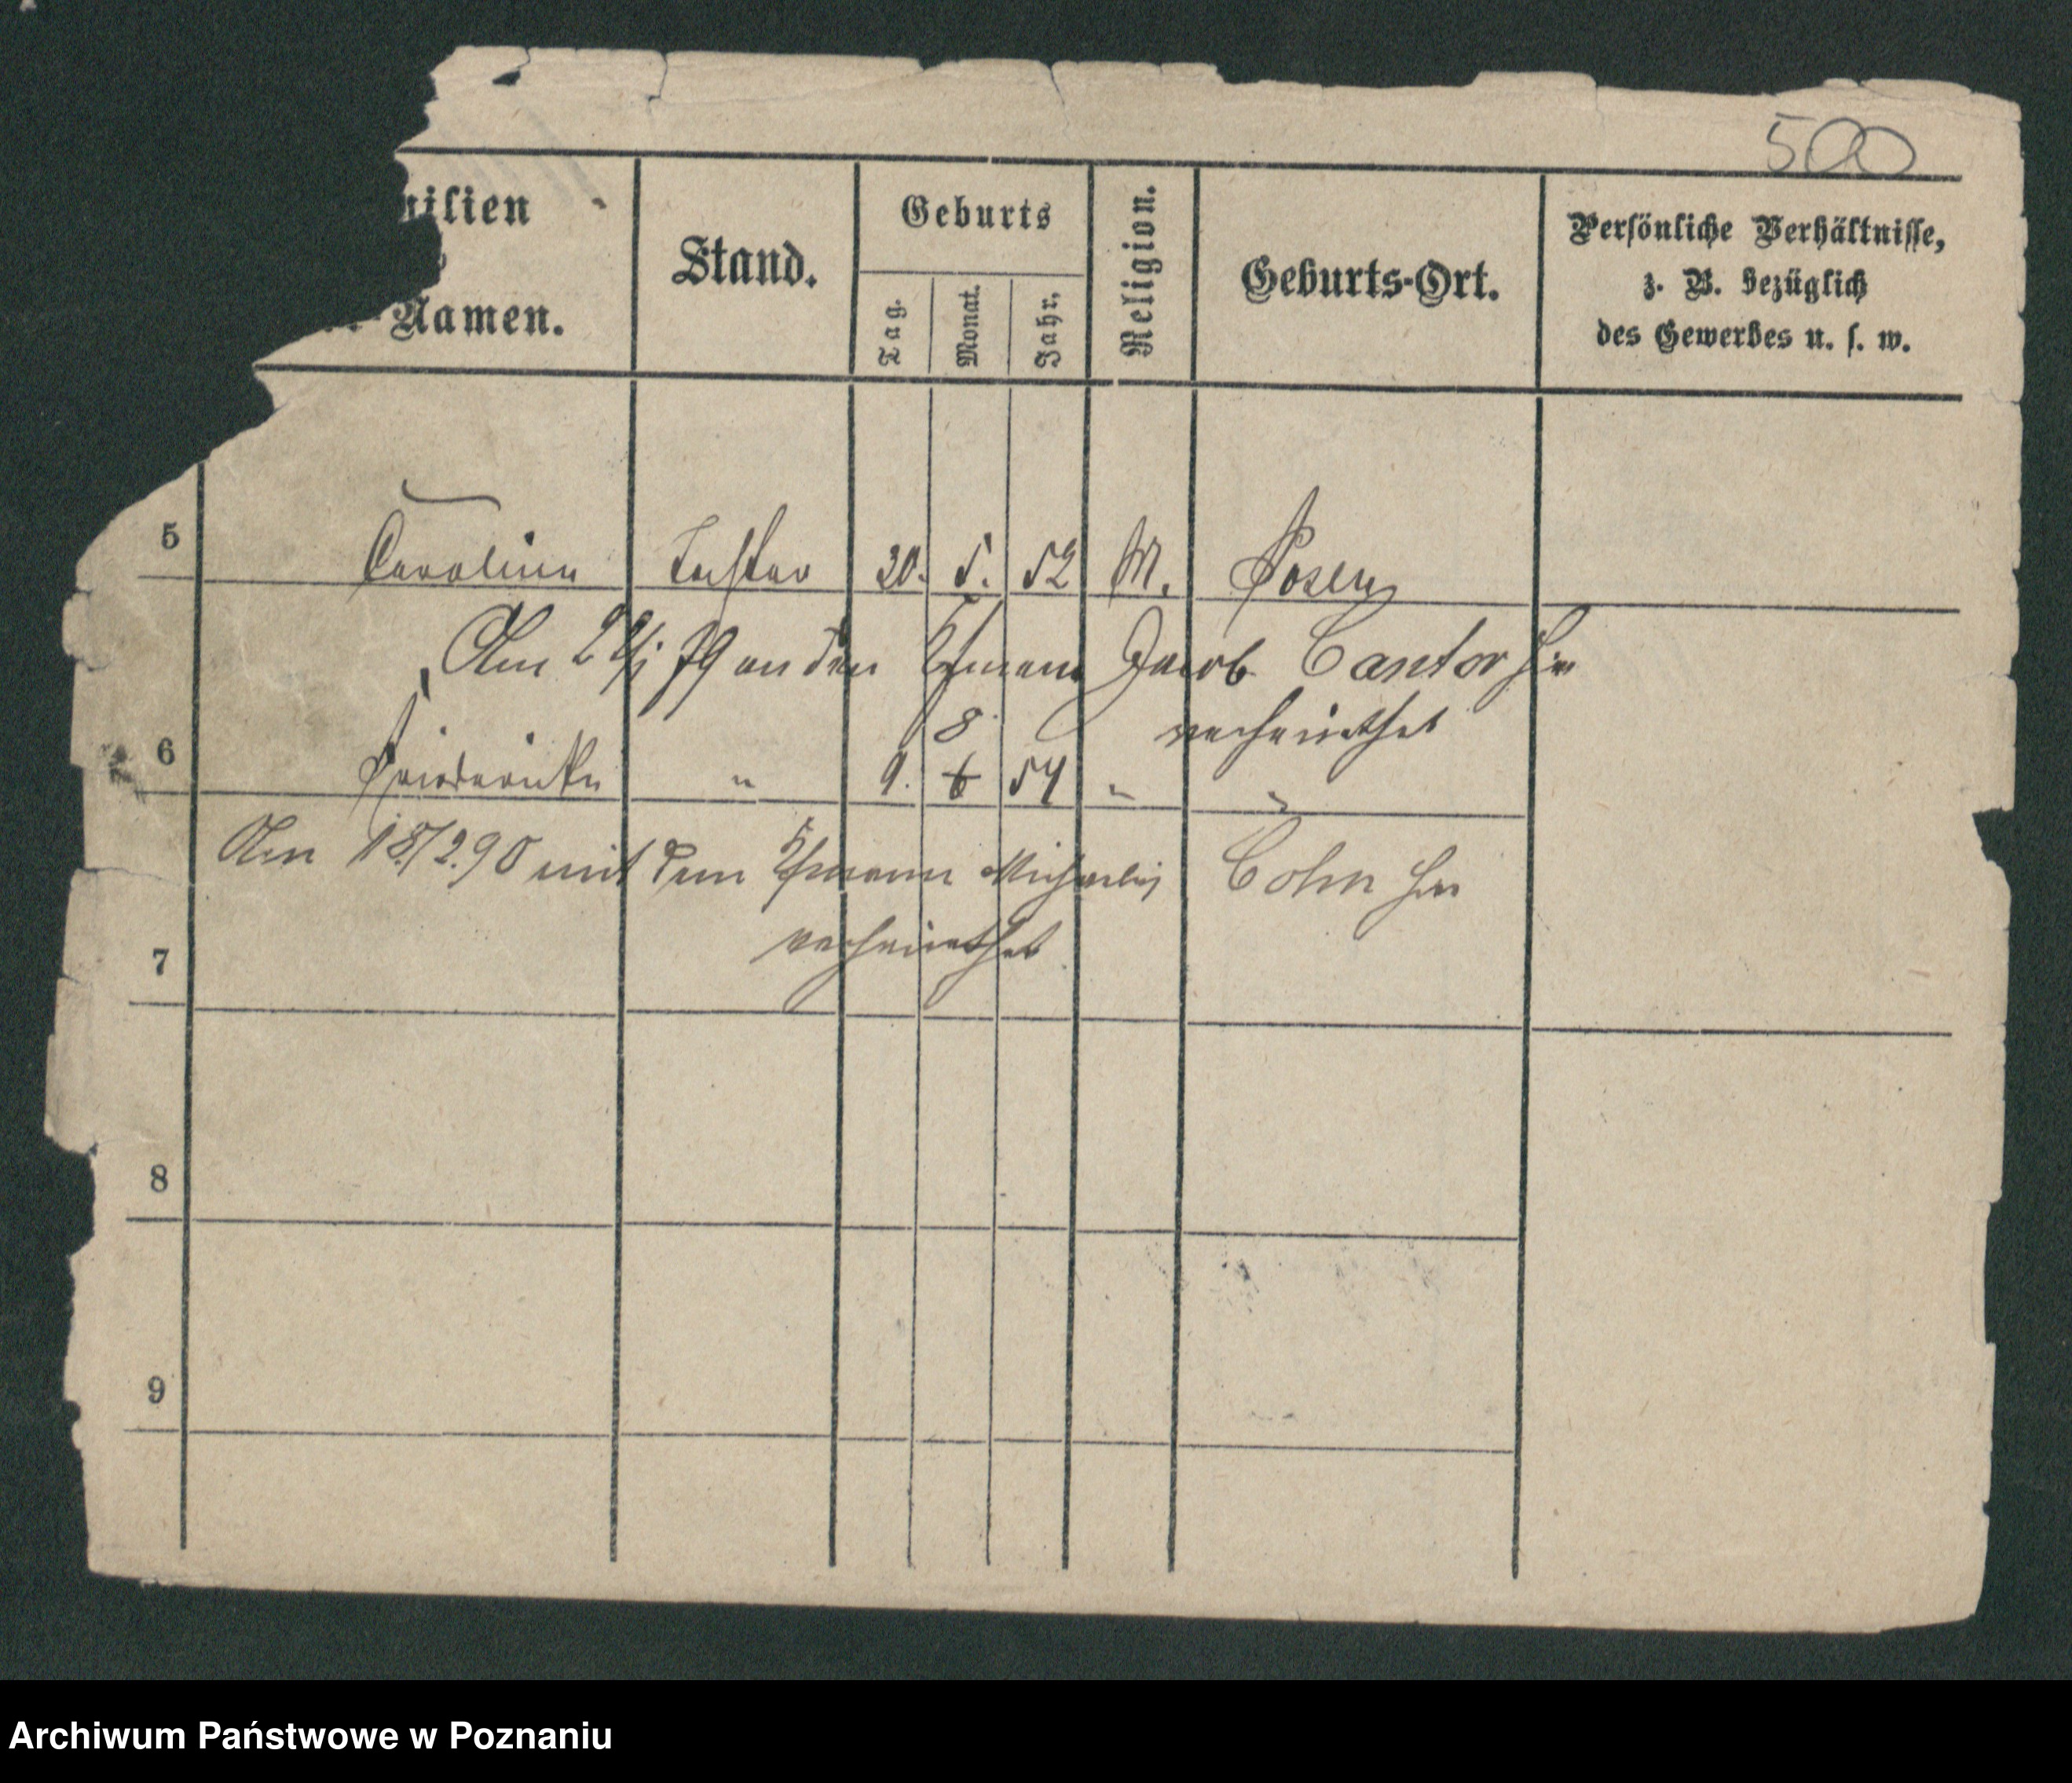 500
milien
Namen.
Stand.
Geburts
Tag.
Monat.
Jahr.
Religion.
Geburts-Ort.
Persönliche Verhältnisse,
z. B. bezüglich
des Gewerbes u. s. w.
5 Caroline Tochter 30. 5. 52 M. Posen
Am 79 an den Kfmann Jacob Cantor hier
verheirathet
8
6 Friederike " 9. 6 54 " "
Am 18/2.90 mit dem Kfmann Michaelis Cohn hier
verheirathet
7
8
9
Archiwum Państwowe w Poznaniu